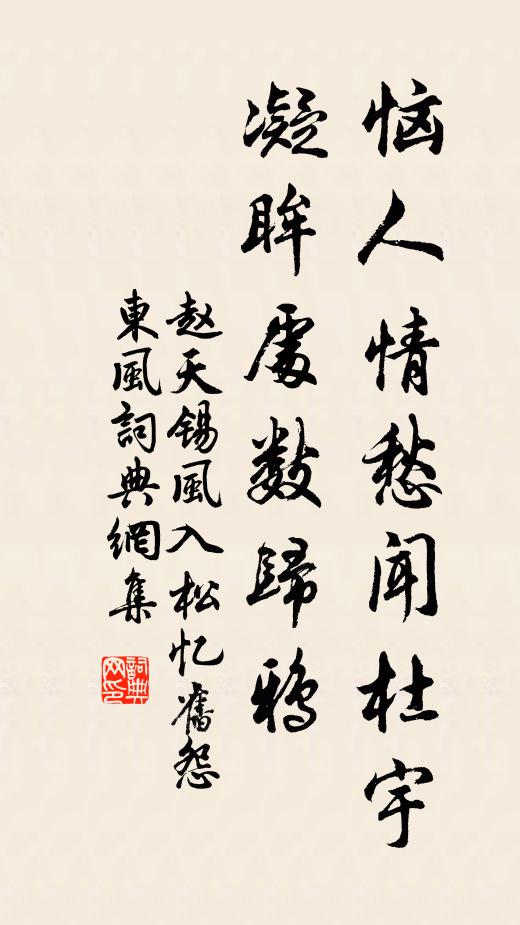 恼人情愁闻杜宇
凝眸处数歸鸦
赵天锡風入松忆舊怨
東風詞典網集
詞典网印